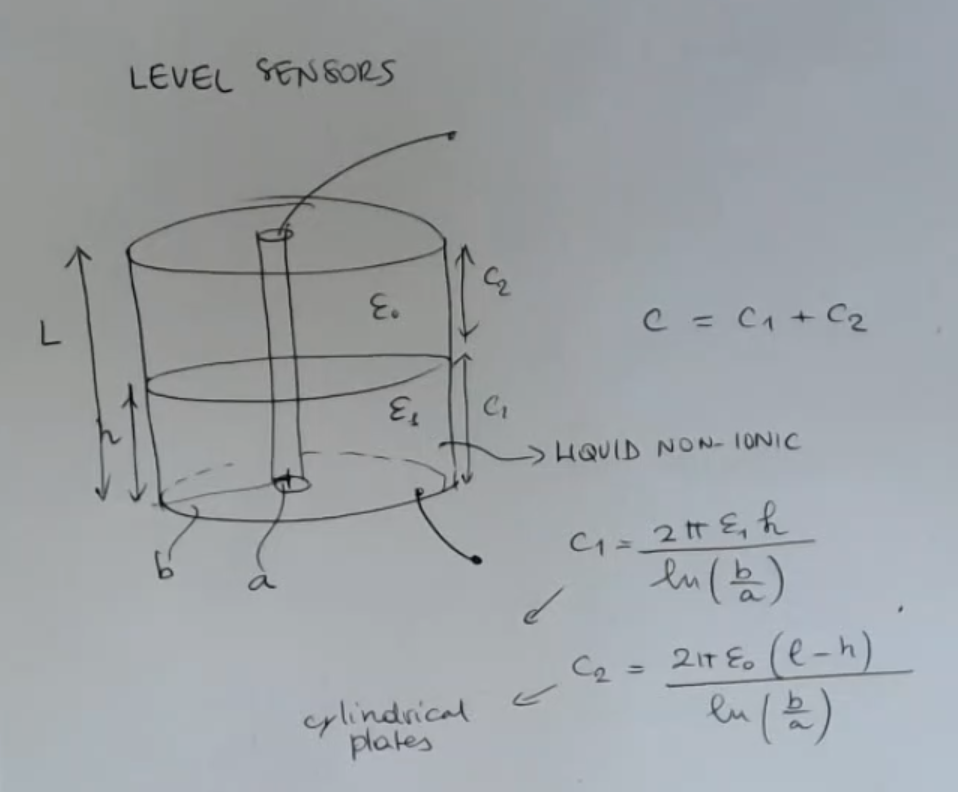 LEVEL SENSORS
L
h
ε₀
C₂
C = C₁ + C₂
ε₁
C₁
LIQUID NON-IONIC
b
a
C₁ = 2π ε₁ h / ln(b/a)
C₂ = 2π ε₀ (l-h) / ln(b/a)
cylindrical
plates